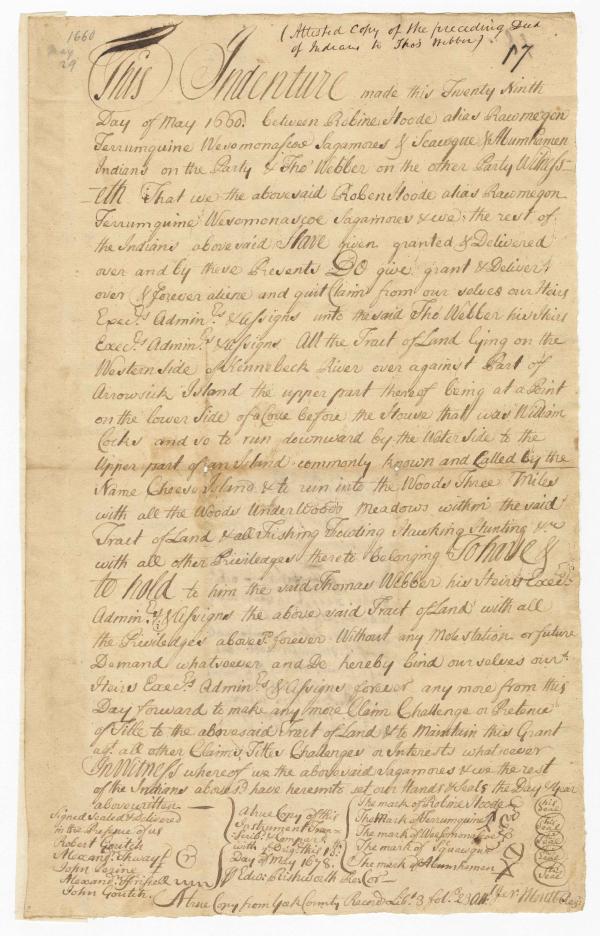 1660
May
29
(Attested Copy of the preceding Deed
of Indians to Thos Webber)
17
This Indenture made this Twenty Ninth
Day of May 1660. between Robine Hoode alias Rawmegon
Terrumquine Wesomonascoe Sagamores & Scawque & Abumhamen
Indians on the Party & Tho Webber on the other Party Witness-
-eth That we the abovesaid Roben Hoode alias Rawmegon
Terrumquine Wesomonascoe Sagamores & we, the rest of
the Indians abovesaid Have given granted & Delivered
over and by these Presents Do give grant & Deliver
over & forever aliene and quit Claim from our selves our Heirs
Execrs Adminrs & assigns unto the said Tho Webber his Heirs
Execrs Adminrs & assigns All the Tract of Land lying on the
Western side of Kinnebeck River over against Part of
Arrowsick Island the upper part thereof being at a Point
on the lower Side of a Cove before the House that was William
Cocks and so to run downward by the Water Side to the
Upper part of an Island commonly known and Called by the
Name Cheese Island & to run into the Woods Three Miles
with all the Woods Underwoods Meadows within the said
Tract of Land & all Fishing Fowling Hawking Hunting &c
with all other Priviledges thereto belonging To have &
to hold to him the said Thomas Webber his Heirs Execrs
Adminrs & Assigns the above said Tract of Land with all
the Priviledges abovesd forever Without any Molestation or future
Demand whatsoever and Do hereby bind ourselves our
Heirs Execrs Adminrs & Assigns forever any more from this
Day forward to make any more Claim Challenge or Pretence
of Title to the abovesaid Tract of Land & to Maintain this Grant
agt all other Claims Titles Challenges or Interests whatsoever
In Witness whereof we the abovesaid Sagamores & we the rest
of the Indians abovesd have hereunto set our Hands & Seals the Day & Year
abovewritten
Signed Sealed & Delivered
in the Presence of us
Robert Goutch
Alexandr Thwayt
John Peirine
Alexandr Frissell
John Goutch.
A true Copy of this
Instrument Tran-
scribd & Compared
with ye Origl this
Day of May 1678.
Edw: Rishworth ReCor
The mark of Robine Hoode
The Mark of Terrumquine
The Mark of Wesomonascoe
The mark of Squawque
The Mark of Abumhamen
his Seal
his Seal
his Seal
his Seal
his Seal
A true Copy from York County Record Libo 3 fol. 23 Attr Jer Moulton Regr